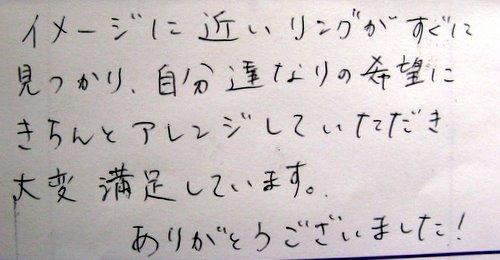 イメージに近いリングがすぐに
見つかり、自分達なりの希望に
きちんとアレンジしていただき
大変満足しています。
ありがとうございました!